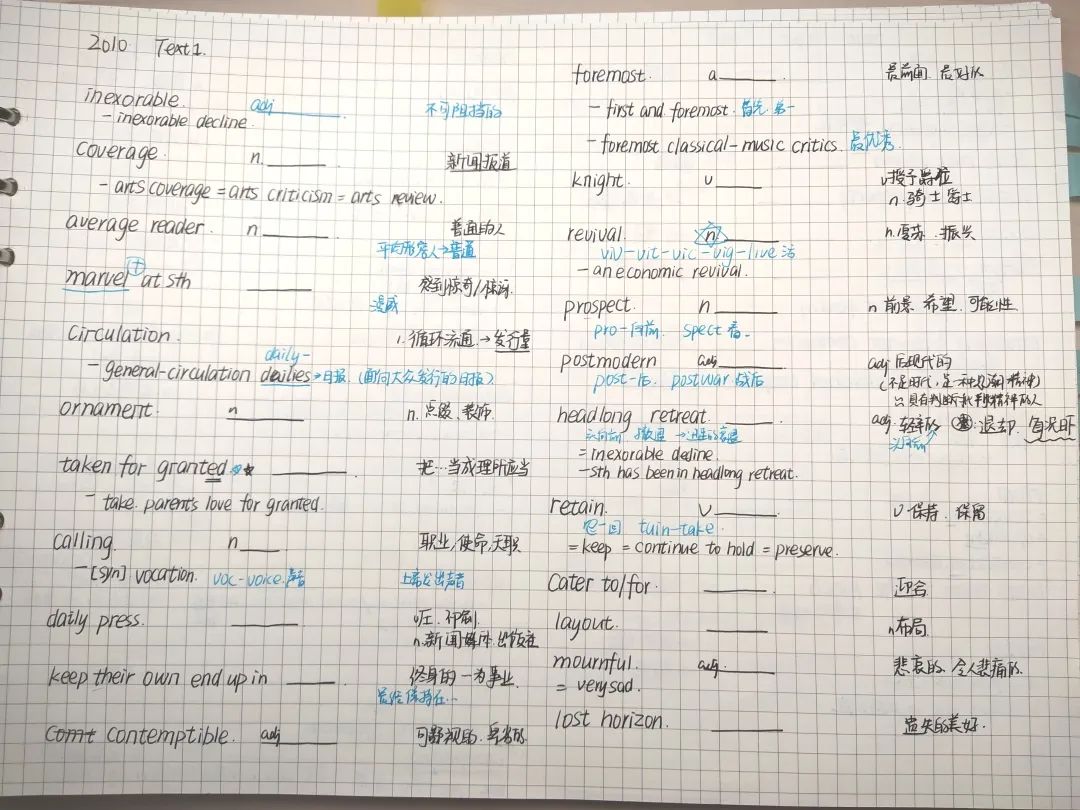 2010 Text1.
inexorable. adj 不可阻挡的
- inexorable decline.
coverage. n. 新闻报道
- arts coverage = arts criticism = arts review.
average reader. n 普通的人
平均形容人→普通
marvel at sth 感到惊奇/惊讶
漫威
circulation. 1. 循环流通→发行量
daily-
- general-circulation dailies→日报. (面向大众发行的日报)
ornament. n n. 点缀、装饰
taken for granted 把…当成理所应当
- take parent's love for granted.
calling. n 职业,使命,天职
- [syn] vocation. voc-voice.声音 上帝发出声音
daily press. v压、印刷.
n.新闻媒体.出版社
keep their own end up in 终身的一为事业.
最终保持在…
Comt contemptible. adj 可鄙视的.
foremost. a 最前面.
- first and foremost.首先.第一
- foremost classical-music critics.最优秀.
knight. v v授予爵位
n.骑士爵士
revival. n n.复苏.振兴
viv-vit-vic-vig-live活
- an economic revival.
prospect. n n前景.希望.可能性.
pro-向前. spect看-
postmodern adj adj后现代的
post-后. postwar战后 (不是时代,是一种思潮精神)
具有判断批判精神的人
headlong retreat. adj.轻率的 退却.
头向前 撤退
= inexorable decline.
- sth has been in headlong retreat.
retain. v v保持.保留
tain-take.
= keep = continue to hold = preserve.
cater to/for. 迎合
layout. n布局.
mournful. adj. 悲哀的.令人悲痛的.
= very sad.
lost horizon. 遗失的美好.